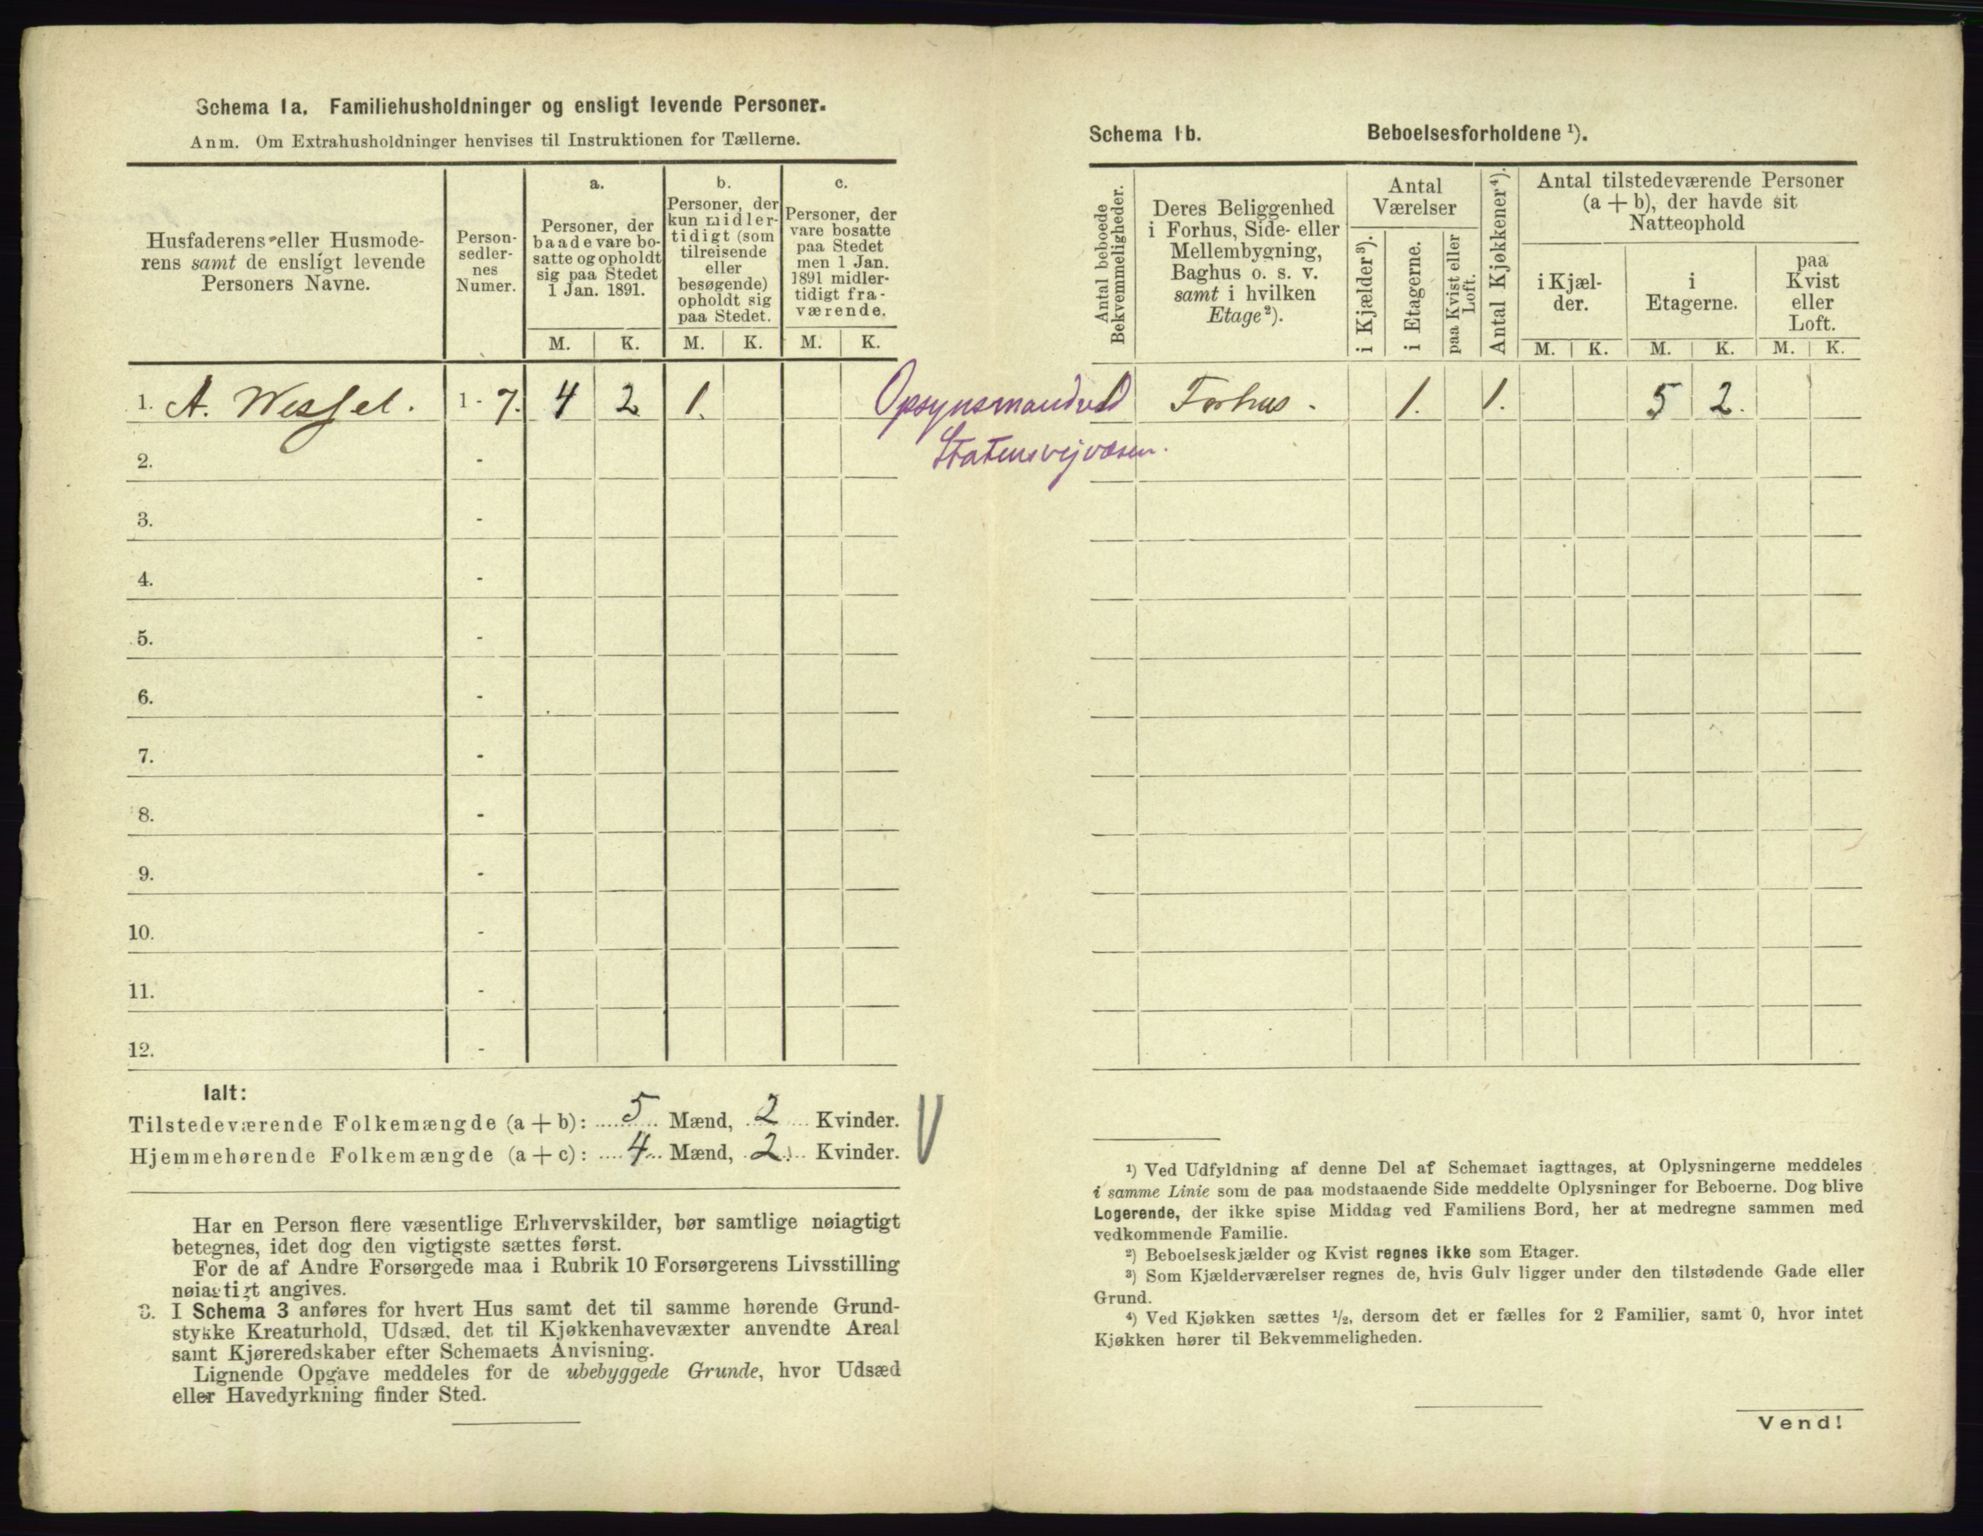 Schema 1a. Familiehusholdninger og ensligt levende Personer.
Anm. Om Extrahusholdninger henvises til Instruktionen for Tællerne.
Husfaderens eller Husmode-
rens samt de ensligt levende
Personers Navne.
Person-
sedler-
nes
Numer.
a.
Personer, der
baade vare bo-
satte og opholdt
sig paa Stedet
1 Jan. 1891.
b.
Personer, der
kun midler-
tidigt (som
tilreisende
eller
besøgende)
opholdt sig
paa Stedet.
c.
Personer, der
vare bosatte
paa Stedet
men 1 Jan.
1891 midler-
tidigt fra-
værende.
M. K. M. K. M. K.
1. A. Wessel. 1 - 7. 4 2 1.
2. -
3. -
4. -
5. -
6. -
7. -
8. -
9. -
10. -
11. -
12. -
Ialt:
Tilstedeværende Folkemængde (a + b): 5 Mænd, 2 Kvinder.
Hjemmehørende Folkemængde (a + c): 4 Mænd, 2. Kvinder.
Har en Person flere væsentlige Erhvervskilder, bør samtlige nøiagtigt
betegnes, idet dog den vigtigste sættes først.
For de af Andre Forsørgede maa i Rubrik 10 Forsørgerens Livsstilling
nøiagtigt angives.
3. I Schema 3 anføres for hvert Hus samt det til samme hørende Grund-
stykke Kreaturhold, Udsæd, det til Kjøkkenhavevæxter anvendte Areal
samt Kjøreredskaber efter Schemaets Anvisning.
Lignende Opgave meddeles for de ubebyggede Grunde, hvor Udsæd
eller Havedyrkning finder Sted.
Schema 1b. Beboelsesforholdene ¹).
Antal beboede
Bekvemmeligheder.
Deres Beliggenhed
i Forhus, Side- eller
Mellembygning,
Baghus o. s. v.
samt i hvilken
Etage²).
Antal
Værelser
i Kjælder³).
i Etagerne.
paa Kvist eller
Loft.
Antal Kjøkkener⁴).
Antal tilstedeværende Personer
(a + b), der havde sit
Natteophold
i Kjæl-
der.
i
Etagerne.
paa
Kvist
eller
Loft.
M. K. M. K. M. K.
Opsynsmand ved
Statens vejvæsen.
1 Forhus. 1. 1. 5 2.
¹) Ved Udfyldning af denne Del af Schemaet iagttages, at Oplysningerne meddeles
i samme Linie som de paa modstaaende Side meddelte Oplysninger for Beboerne. Dog blive
Logerende, der ikke spise Middag ved Familiens Bord, her at medregne sammen med
vedkommende Familie.
²) Beboelseskjælder og Kvist regnes ikke som Etager.
³) Som Kjælderværelser regnes de, hvis Gulv ligger under den tilstødende Gade eller
Grund.
⁴) Ved Kjøkken sættes ½, dersom det er fælles for 2 Familier, samt 0, hvor intet
Kjøkken hører til Bekvemmeligheden.
Vend!